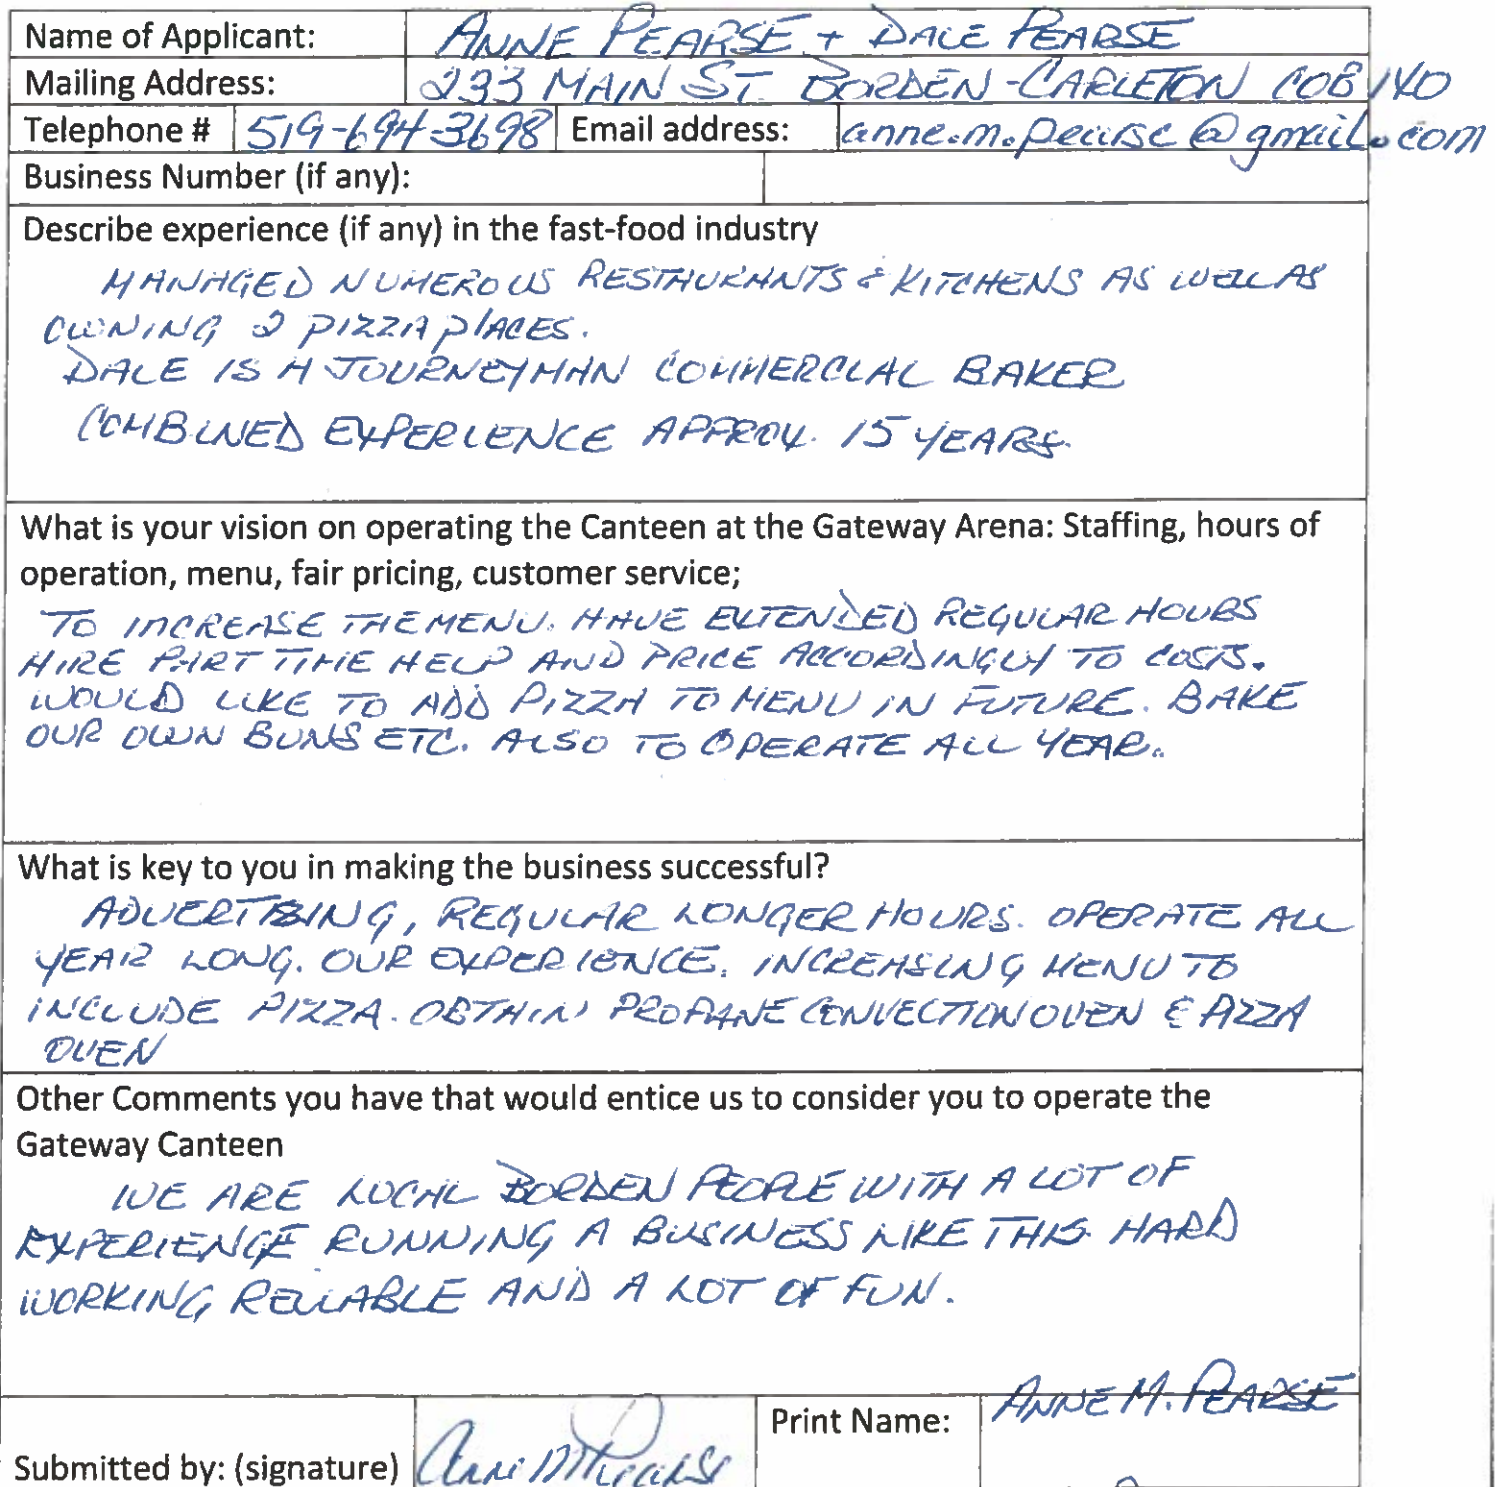 Name of Applicant: ANNE PEARSE + DALE PEARSE
Mailing Address: 233 MAIN ST. BORDEN-CARLETON COB 1X0
Telephone # 519-694-3698 Email address: anne.m.pearse@gmail.com
Business Number (if any):
Describe experience (if any) in the fast-food industry
MANAGED NUMEROUS RESTAURANTS & KITCHENS AS WELL AS
OWNING 2 PIZZA PLACES.
DALE IS A JOURNEYMAN COMMERCIAL BAKER
COMBINED EXPERIENCE APPROX. 15 YEARS.
What is your vision on operating the Canteen at the Gateway Arena: Staffing, hours of
operation, menu, fair pricing, customer service;
TO INCREASE THE MENU. HAVE EXTENDED REGULAR HOURS
HIRE PART TIME HELP AND PRICE ACCORDINGLY TO COSTS.
WOULD LIKE TO ADD PIZZA TO MENU IN FUTURE. BAKE
OUR OWN BUNS ETC. ALSO TO OPERATE ALL YEAR.
What is key to you in making the business successful?
ADVERTISING, REGULAR LONGER HOURS. OPERATE ALL
YEAR LONG. OUR EXPERIENCE. INCREASING MENU TO
INCLUDE PIZZA. OBTAIN PROPANE CONVECTION OVEN & PIZZA
OVEN
Other Comments you have that would entice us to consider you to operate the
Gateway Canteen
WE ARE LOCAL BORDEN PEOPLE WITH A LOT OF
EXPERIENCE RUNNING A BUSINESS LIKE THIS. HARD
WORKING, RELIABLE AND A LOT OF FUN.
Submitted by: (signature) Anne M Pearse Print Name: ANNE M. PEARSE